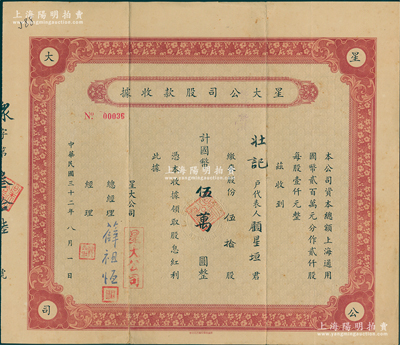 上海阳明拍卖
www.yangmingauction.com
星
大
公
司
星大公司股款收據
No 00036
本公司資本總額上海通用
國幣貳百萬元分作貳仟股
每股壹仟元整
茲收到
壯記 戶代表人顧星垣君
繳來股份 伍拾 股
計國幣 伍萬 圓整
憑本收據領取股息紅利
此據
星大公司
總經理
經理
中華民國三十二年 八 月 一 日
字第
號